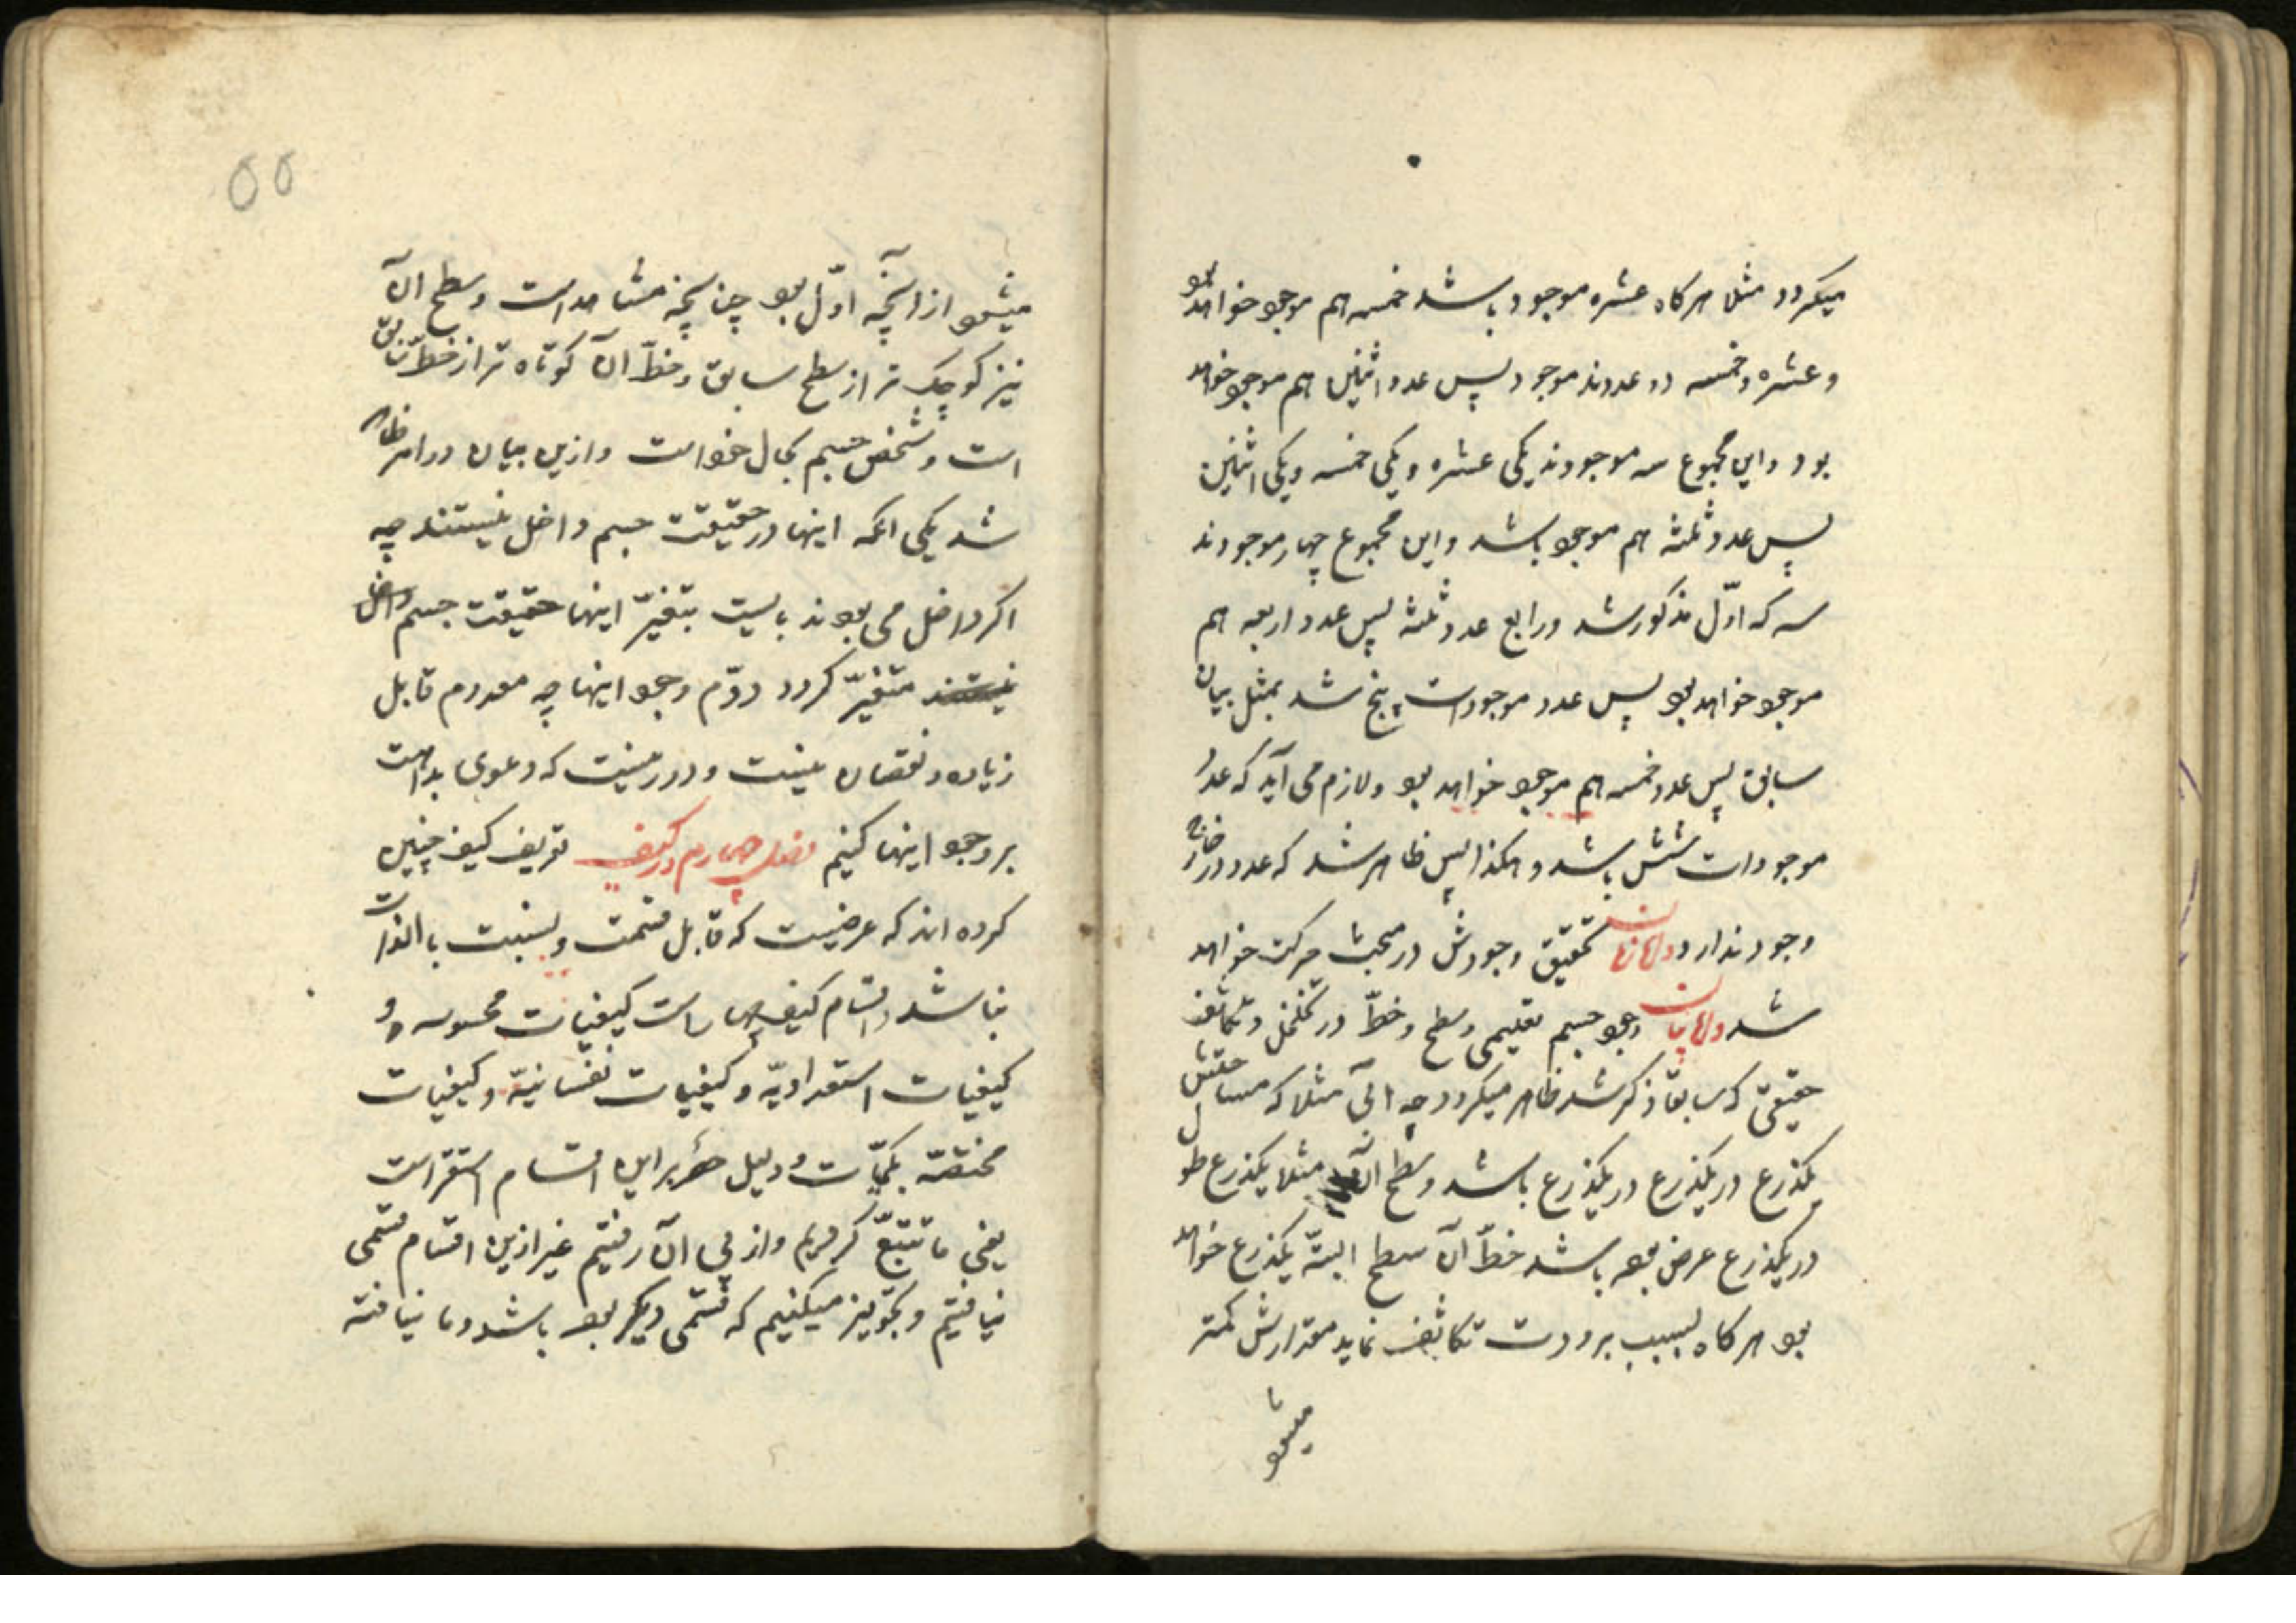 میکردد مثلا هرکاه عشره موجود باشد خمسه هم موجود خواهد بود
و عشره و خمسه دو عددند موجود پس عدد اثنین هم موجود خواهد
بود و این مجموع سه موجودند یکی عشره و یکی خمسه و یکی اثنین
پس عدد ثلثه هم موجود باشد و این مجموع چهار موجودند
سه که اوّل مذکور شد و رابع عدد ثلثه پس عدد اربعه هم
موجود خواهد بود پس عدد موجودات پنج شد بمثل بیان
سابق پس عدد خمسه هم موجود خواهد بود و لازم می آید که عدد
موجودات شش باشد و هکذا پس ظاهر شد که عدد در خارج
وجود ندارد و امّا زمان تحقیق وجودش در مبحث حرکت خواهد
شد و امّا بیان وجود جسم تعلیمی و سطح و خطّ در تخلخل و تکاثف
حقیقی که سابقا ذکر شد ظاهر میکردد چه آبی مثلا که مساحتش
یکذرع در یکذرع در یکذرع باشد و سطح آن مثلا یکذرع طول
در یکذرع عرض بوده باشد خطّ آن سطح البتّه یکذرع خواهد
بود هرکاه بسبب برودت تکاثف نماید مقدارش کمتر
میشود
۵۵
میشود از آنچه اوّل بود چنانچه مشاهد است و سطح آن
نیز کوچک تر از سطح سابق و خطّ آن کوتاه تر از خطّ سابق
است و شخص جسم بحال خود است و ازین بیان دو امر ظاهر
شد یکی آنکه اینها در حقیقت جسم داخل نیستند چه
اکر داخل می بودند بایست بتغیّر اینها حقیقت جسم داخل
نیستند متغیّر کردد دوّم وجود اینها چه معدوم قابل
زیاده و نقصان نیست و دور نیست که دعوی بداهت
بر وجود اینها کنیم فصل چهارم در کیف تعریف کیف چنین
کرده اند که عرضیست که قابل قسمت و نسبت بالذات
نباشد و اقسام کیف چهار است کیفیّات محسوسه و
کیفیات استعدادیّه و کیفیات نفسانیّه و کیفیات
مختصّه بکمیّات و دلیل حصر بر این اقسام استقراست
یعنی ما تتبّع کردیم و از پی آن رفتیم غیر ازین اقسام قسمی
نیافتیم و تجویز میکنیم که قسمی دیکر بوده باشد و ما نیافته